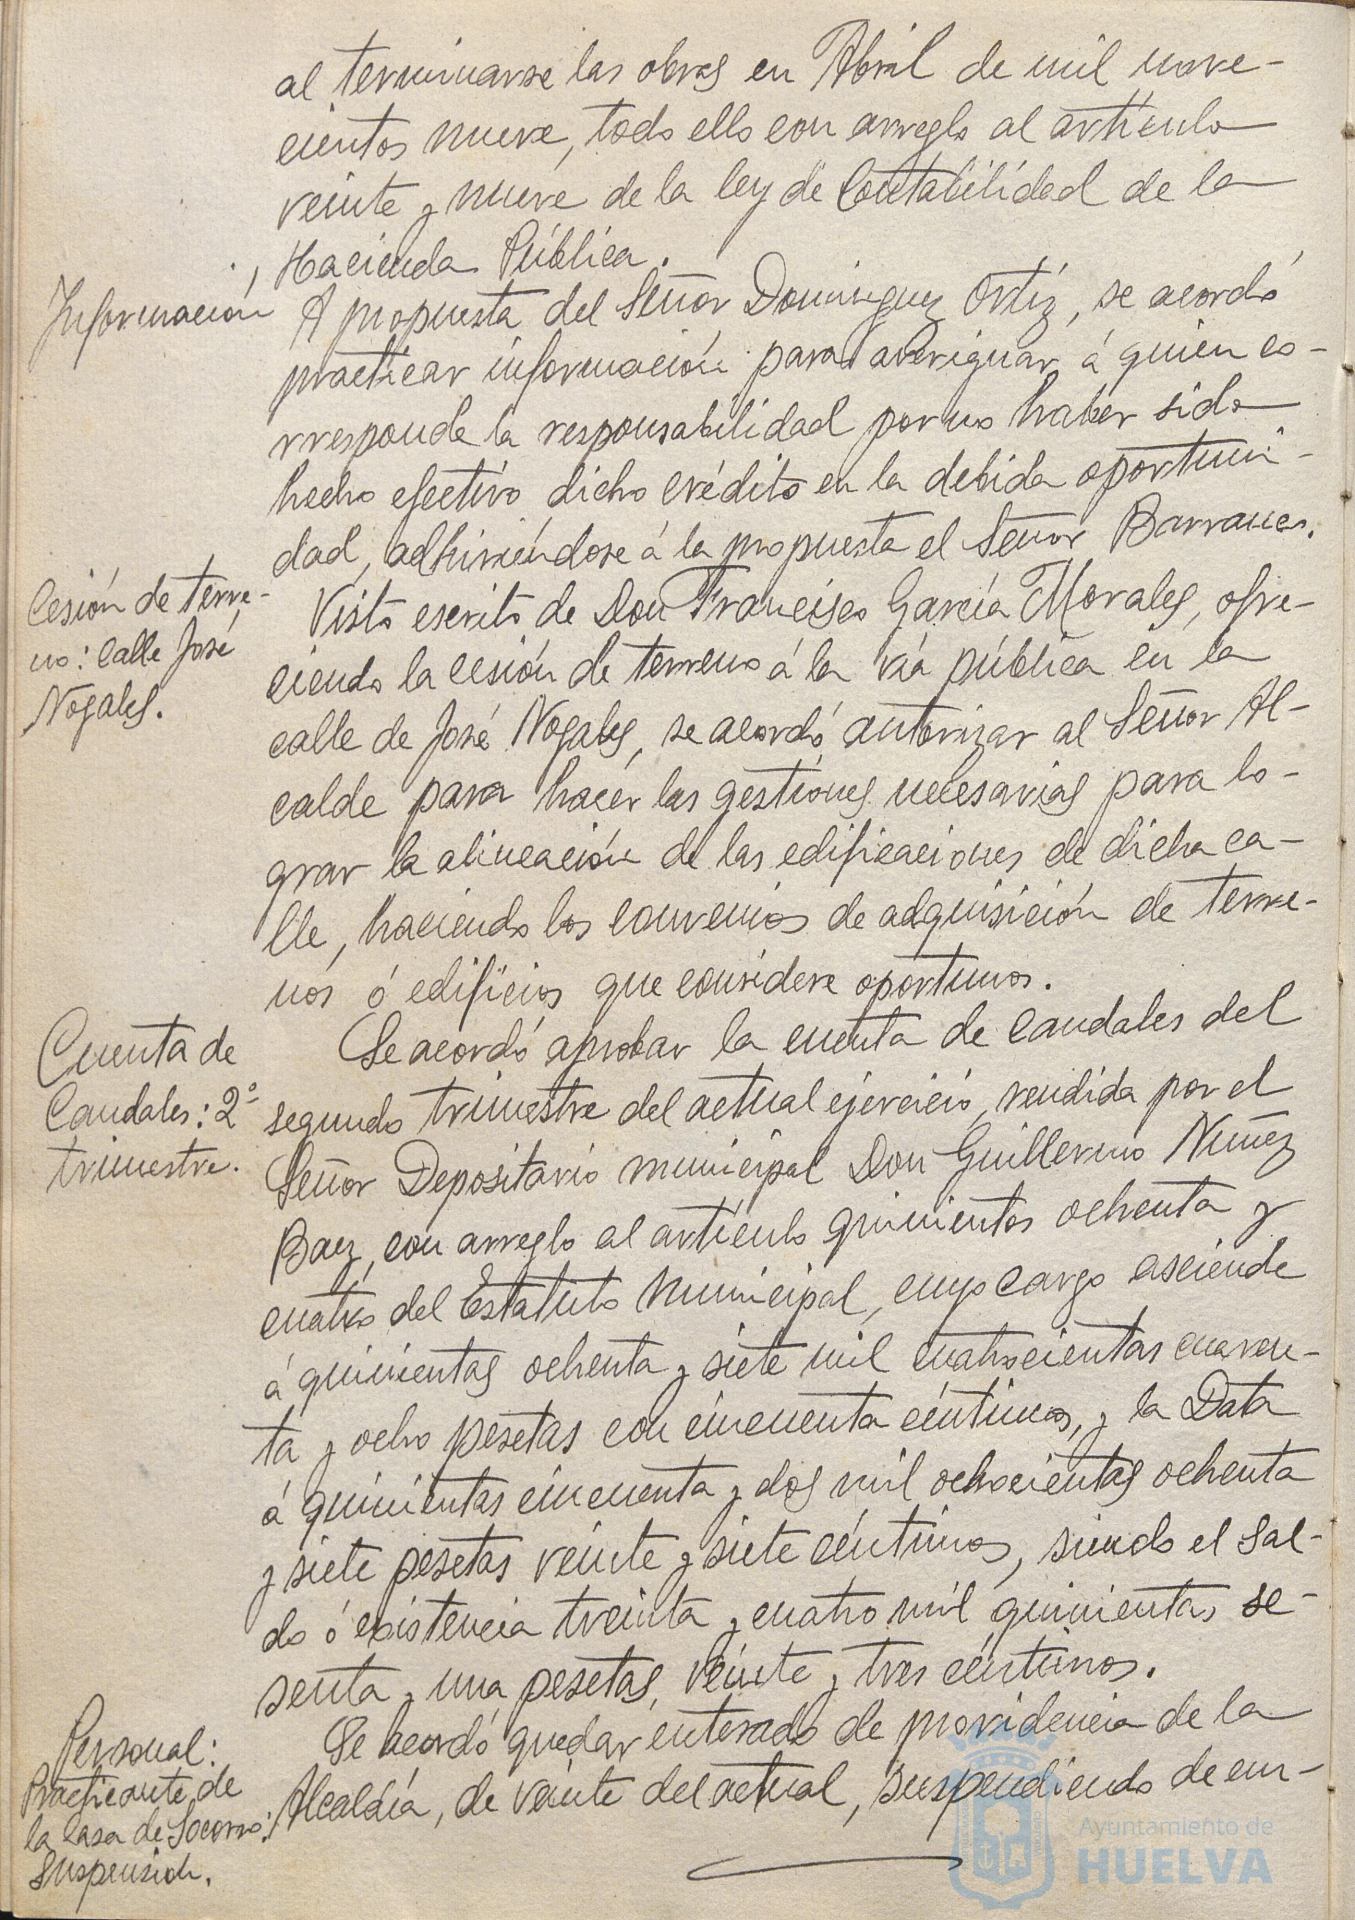 al terminarse las obras en Abril de mil nove-
cientos nueve, todo ello con arreglo al artículo
veinte y nueve de la ley de Contabilidad de la
Hacienda Pública.
Información
A propuesta del Señor Dominguez Ortiz, se acordó
practicar información para averiguar á quien co-
rresponde la responsabilidad por no haber sido
hecho efectivo dicho crédito en la debida oportuni-
dad, adhiriéndose á la propuesta el Señor Barranco.
Cesión de terre-
no: calle José
Nogales.
Visto escrito de Don Francisco García Morales, ofre-
ciendo la cesión de terreno á la vía pública en la
calle de José Nogales, se acordó autorizar al Señor Al-
calde para hacer las gestiones necesarias para lo-
grar la alineación de las edificaciones de dicha ca-
lle, haciendo los convenios de adquisición de terre-
nos ó edificios que considere oportunos.
Cuenta de
Caudales: 2º
trimestre.
Se acordó aprobar la cuenta de caudales del
segundo trimestre del actual ejercicio, rendida por el
Señor Depositario municipal Don Guillermo Nuñez
Baez, con arreglo al artículo quinientos ochenta y
cuatro del Estatuto Municipal, cuyo cargo asciende
á quinientas ochenta y siete mil cuatrocientas cuaren-
ta y ocho pesetas con cincuenta céntimos, y la Data
á quinientas cincuenta y dos mil ochocientas ochenta
y siete pesetas veinte y siete céntimos, siendo el Sal-
do ó existencia treinta y cuatro mil quinientas se-
senta y una pesetas, veinte y tres céntimos.
Personal:
Practicante de
la Casa de Socorro:
Suspensión.
Se acordó quedar enterado de providencia de la
Alcaldía, de veinte del actual, suspendiendo de em-
Ayuntamiento de
HUELVA